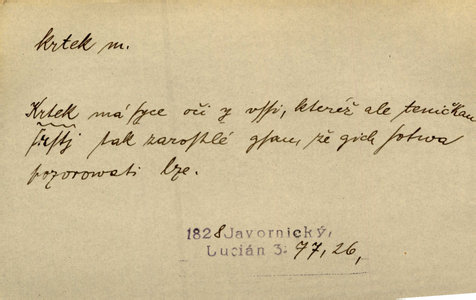 krtek m.
Krtek má syce oči y ussi, kteréž ale teničkau
srstj tak zarostlé gsau, že gich sotwa
pozorowati lze.
1828 Javornický,
Lucián 3: 77, 26,